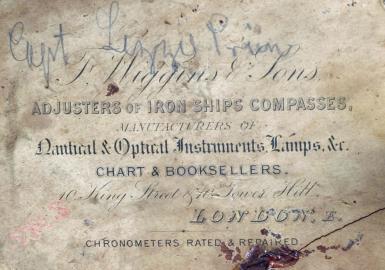 Capt Lizzie
F. Wiggins & Sons,
ADJUSTERS OF IRON SHIPS COMPASSES,
MANUFACTURERS OF
Nautical & Optical Instruments, Lamps, &c.
CHART & BOOKSELLERS.
10 King Street & Tower Hill
LONDON. E.
CHRONOMETERS RATED & REPAIRED